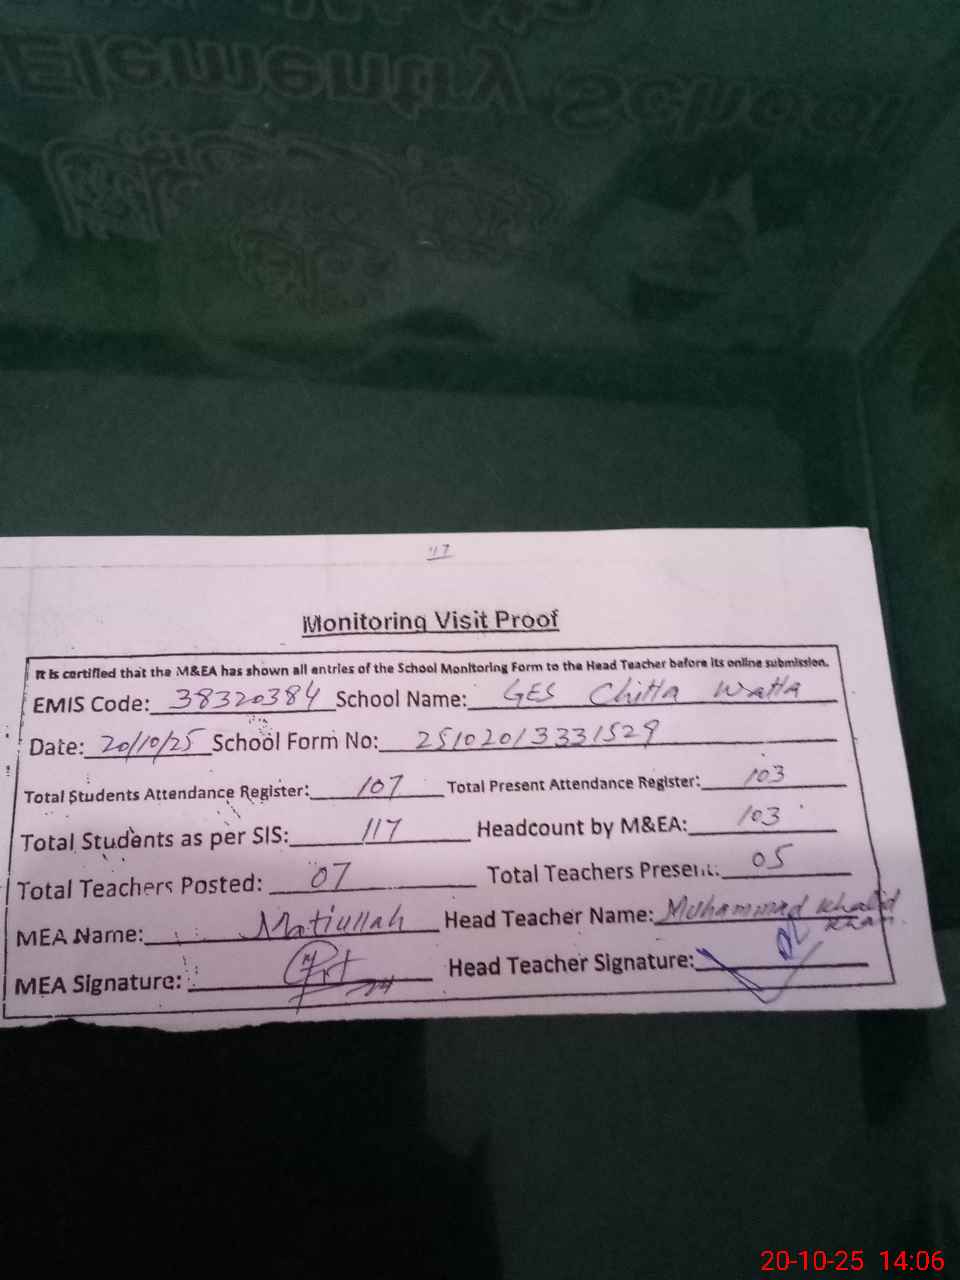 Elementry School
117
Monitoring Visit Proof
It is certified that the M&EA has shown all entries of the School Monitoring Form to the Head Teacher before its online submission.
EMIS Code: 38320384 School Name: GES Chitta Watta
Date: 20/10/25 School Form No: 25102013331529
Total Students Attendance Register: 107 Total Present Attendance Register: 103
Total Students as per SIS: 117 Headcount by M&EA: 103
Total Teachers Posted: 07 Total Teachers Present: 05
MEA Name: Matiullah Head Teacher Name: Muhammad Khalid Khan
MEA Signature: Head Teacher Signature:
20-10-25 14:06